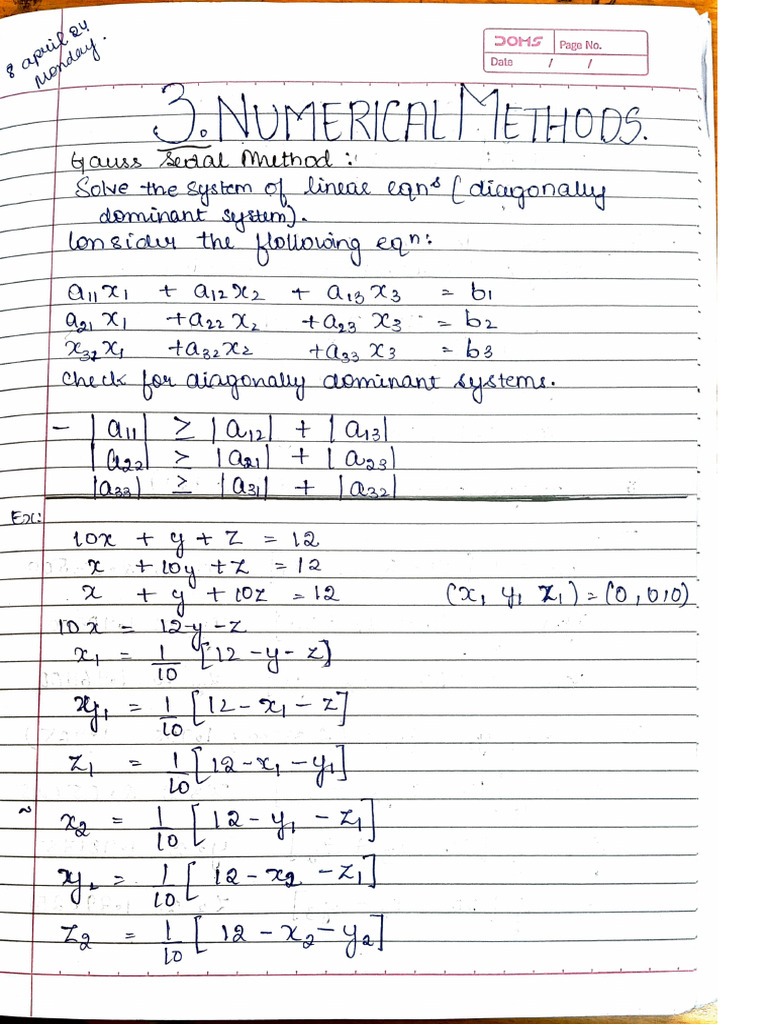 8 april 24
Monday.
DOMS
Page No.
Date / /
3. NUMERICAL METHODS.
Gauss Serial Method :
Solve the system of linear eqnˢ (diagonally
dominant system).
Consider the following eqⁿ:
a₁₁x₁ + a₁₂x₂ + a₁₃x₃ = b₁
a₂₁x₁ + a₂₂x₂ + a₂₃x₃ = b₂
x₃₂x₁ + a₃₂x₂ + a₃₃x₃ = b₃
Check for diagonally dominant systems.
- |a₁₁| ≥ |a₁₂| + |a₁₃|
|a₂₂| ≥ |a₂₁| + |a₂₃|
|a₃₃| ≥ |a₃₁| + |a₃₂|
Ex:
10x + y + z = 12
x + 10y + z = 12
x + y + 10z = 12 (x, y, z,) = (0,0,0)
10x = 12-y-z
x₁ = 1/10 [12-y-z]
y₁ = 1/10 [12-x₁-z]
z₁ = 1/10 [12-x₁-y₁]
~ x₂ = 1/10 [12-y₁-z₁]
y₂ = 1/10 [12-x₂-z₁]
z₂ = 1/10 [12-x₂-y₂]